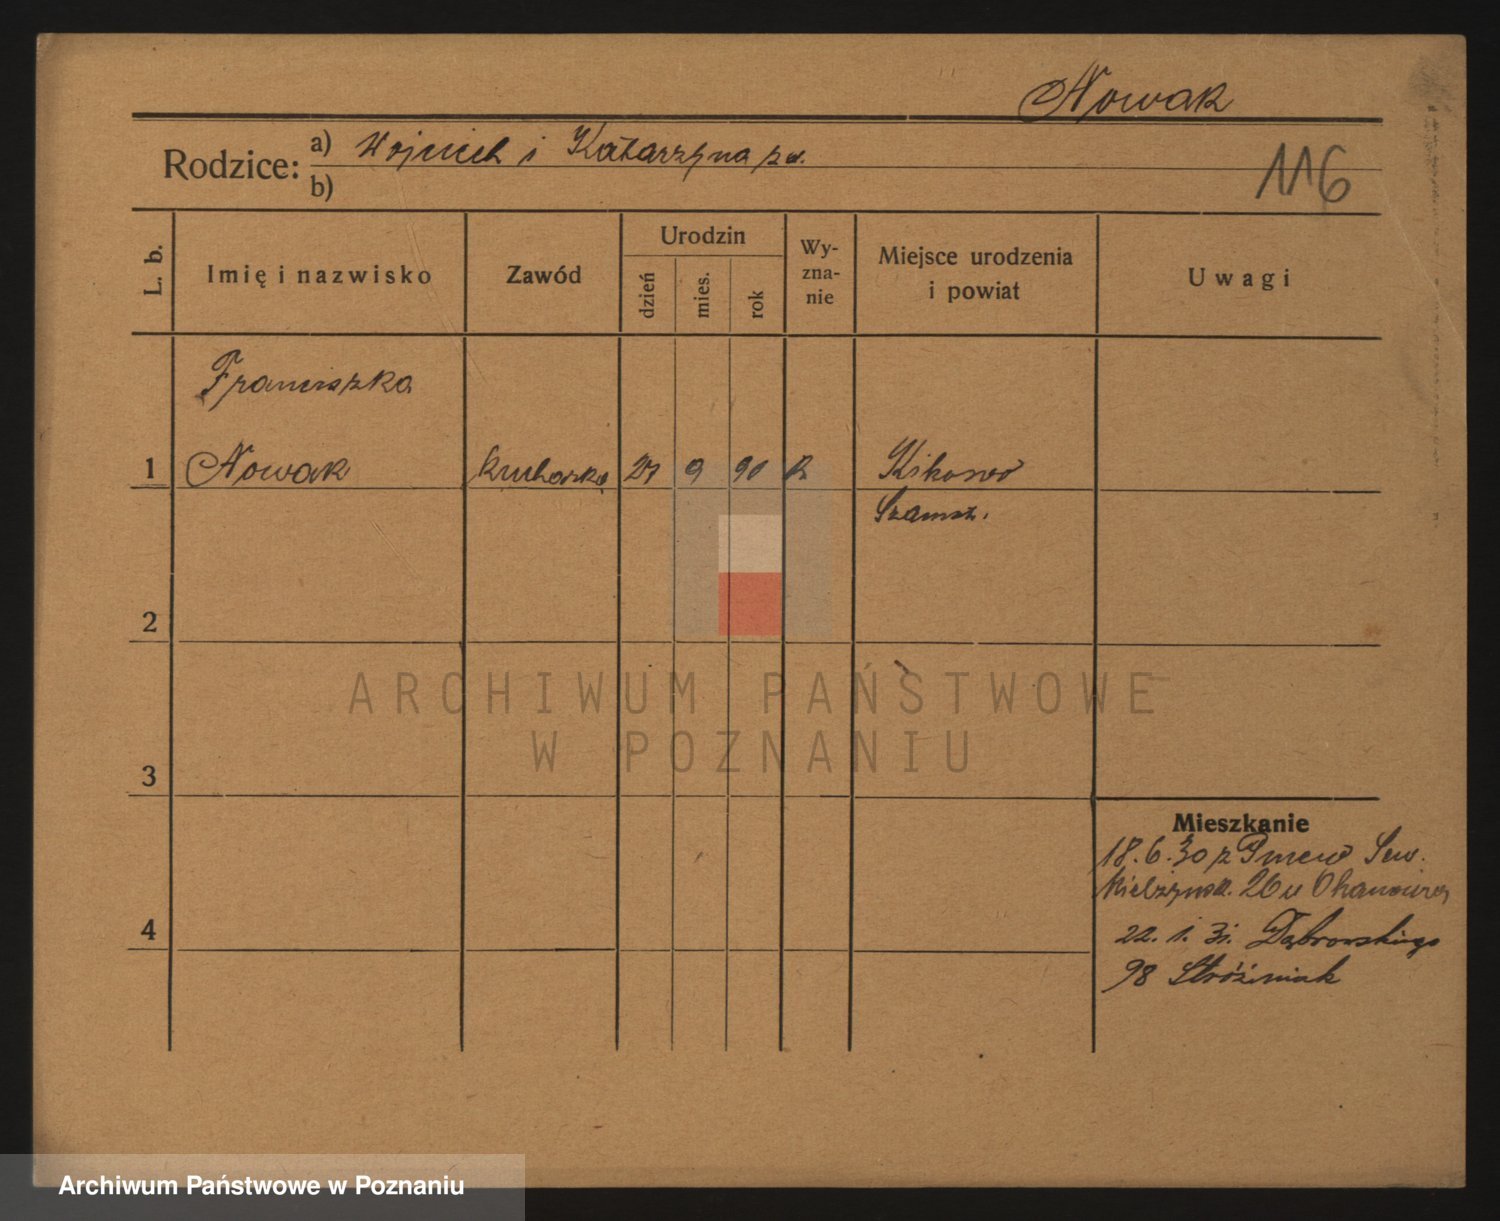 Nowak
Rodzice: a) Wojciech i Katarzyna
b)
116
L. b.
Imię i nazwisko
Zawód
Urodzin
dzień
mies.
rok
Wy-
zna-
nie
Miejsce urodzenia
i powiat
Uwagi
Franciszka
1 Nowak kucharka 27 9 90 R Kikowo
Szamot.
2
ARCHIWUM PAŃSTWOWE
W POZNANIU
3
Mieszkanie
18.6.30 z Pniew Sew.
Mielżyńsk. 26 u
4
22. 1. 31. Dąbrowskiego
98 Stróżniak
Archiwum Państwowe w Poznaniu